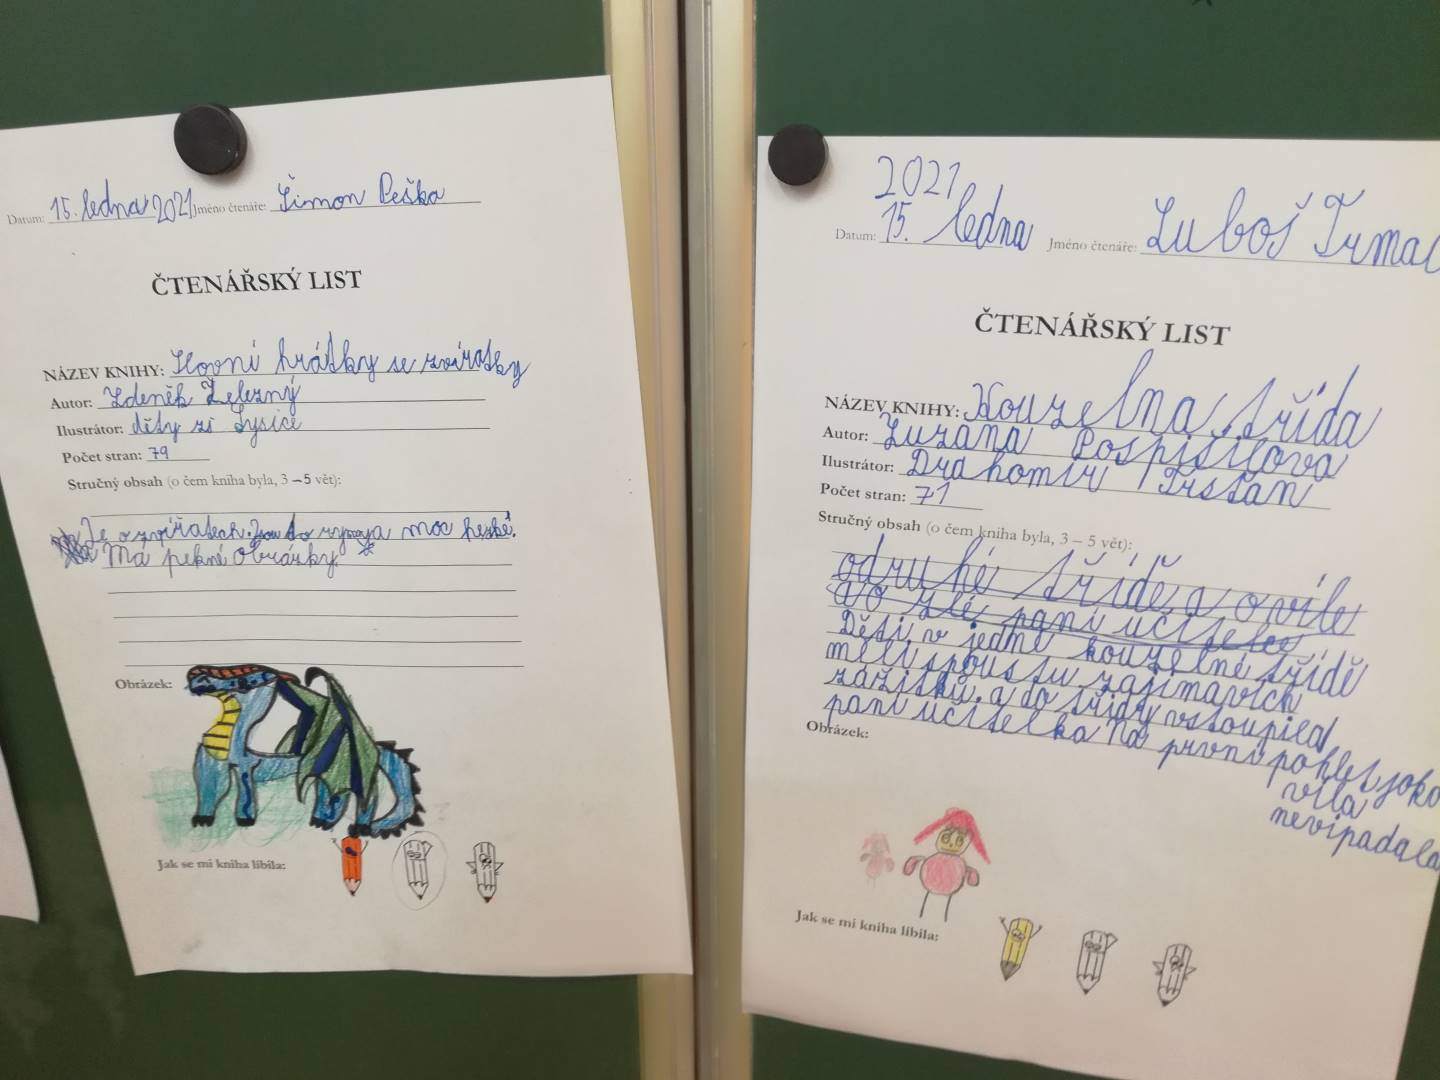 Datum: 15. ledna 2021 Jméno čtenáře: Šimon Peška
ČTENÁŘSKÝ LIST
NÁZEV KNIHY: Slovní hrátky se zvířátky
Autor: Zdeněk Železný
Ilustrátor: děti zš Lysice
Počet stran: 79
Stručný obsah (o čem kniha byla, 3 – 5 vět):
Je o zvířatech. moc hezké.
Má pekné obrázky.
Obrázek:
Jak se mi kniha líbila:
2021
Datum: 15. ledna Jméno čtenáře: Luboš Trmal
ČTENÁŘSKÝ LIST
NÁZEV KNIHY: Kouzelna třída
Autor: Zuzana Pospišilova
Ilustrátor: Drahomír Trsťan
Počet stran: 71
Stručný obsah (o čem kniha byla, 3 – 5 vět):
odruhé třídě a o víle
o zlé paní učitelce
Děti v jedné kouzelné třídě
měli spoustu zajímavích
zážitků, a do třídy vstoupila
paní učitelka na první pohled jako
víla
nevipadala
Obrázek:
Jak se mi kniha líbila: